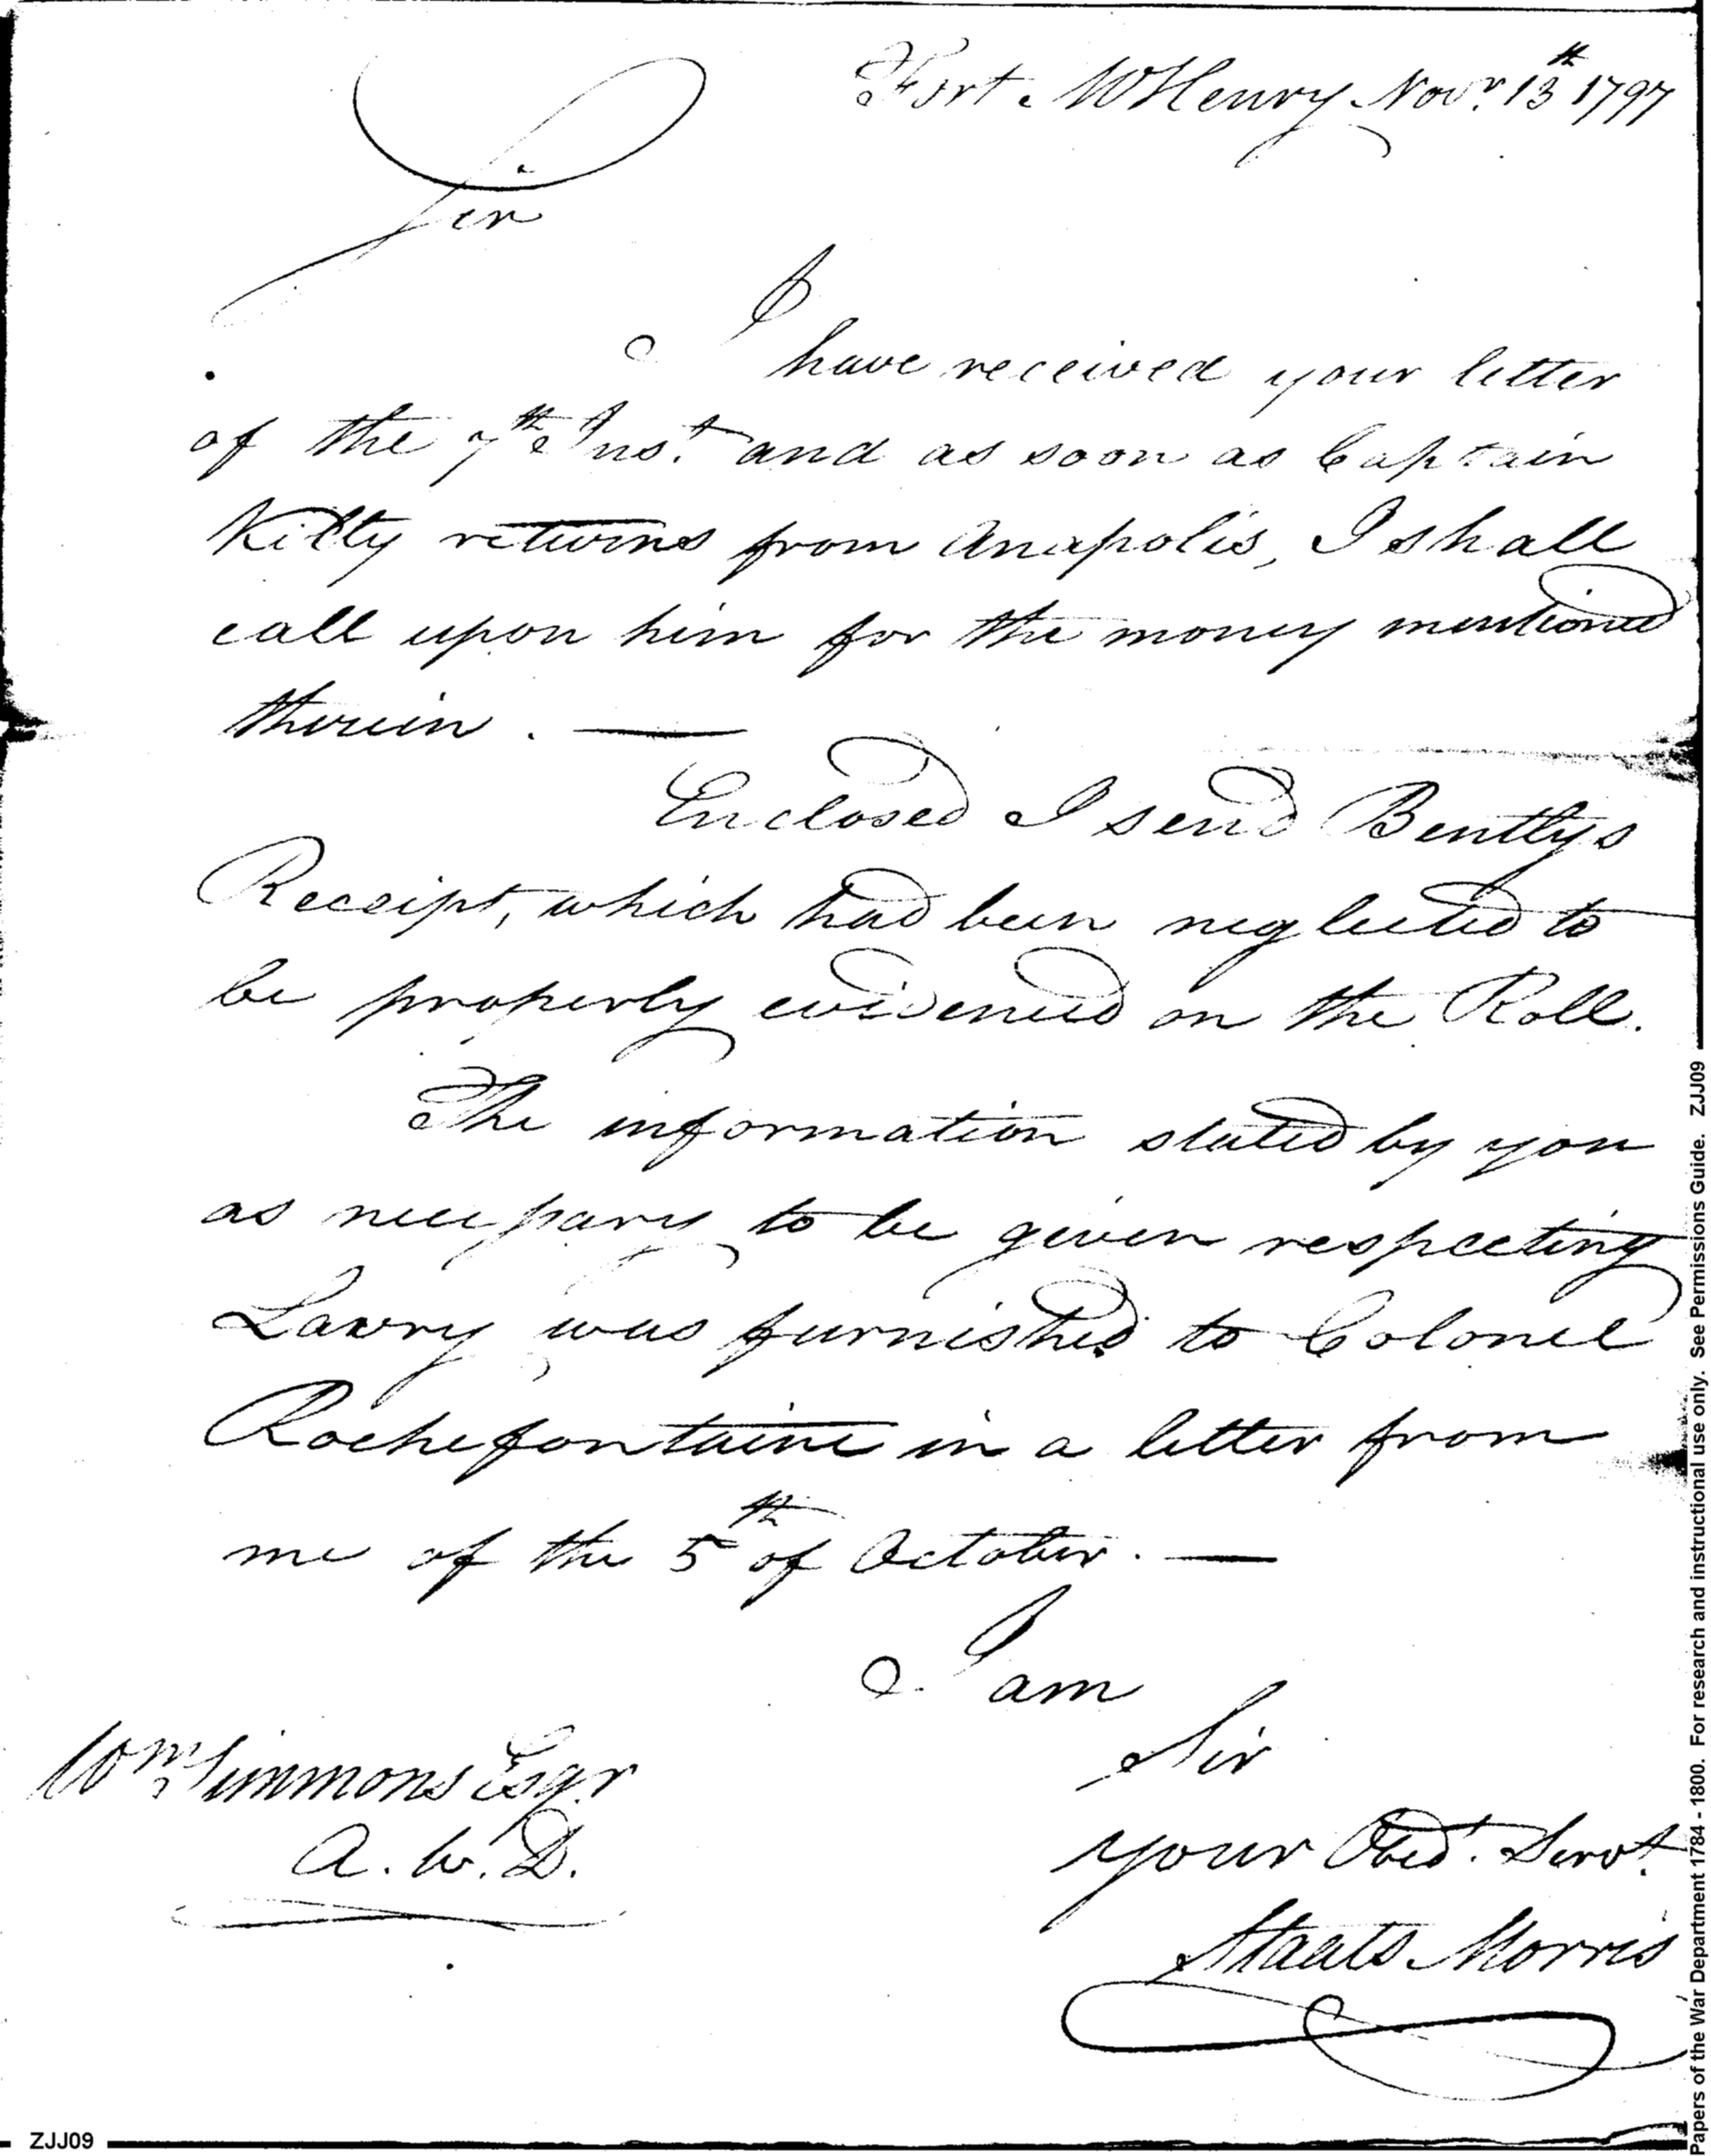 Fort McHenry Novr. 13th 1797
Sir
I have received your letter
of the 7th Inst. and as soon as Captain
Kilty returns from Anapolis, I shall
call upon him for the money mentioned
therein. —
Enclosed I send Bentlys
Receipt, which had been neglected to
be properly evidenced on the Roll.
The information stated by you
as necessary to be given respecting
Lawry was furnished to Colonel
Rochefontaine in a letter from
me of the 5th of October. —
I am
Sir
Wm Simmons Esqr
A. W. D.
your Obedt. Servt.
Staats Morris
Papers of the War Department 1784 - 1800. For research and instructional use only. See Permissions Guide. ZJJ09
ZJJ09